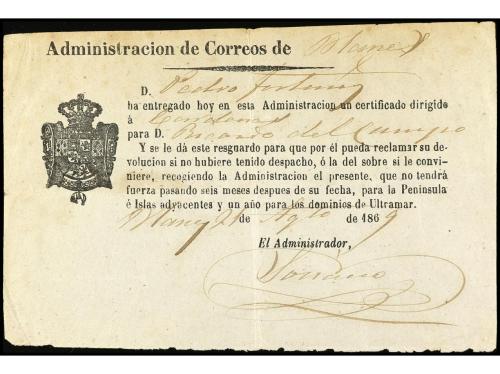 Administracion de Correos de Blanes
D. Pedro
ha entregado hoy en esta Administracion un certificado dirigido
á
para D. Ricardo del Campo
Y se le dá este resguardo para que por él pueda reclamar su de-
volucion si no hubiere tenido despacho, ó la del sobre si le convi-
niere, recogiendo la Administracion el presente, que no tendrá
fuerza pasando seis meses despues de su fecha, para la Península
é Islas adyacentes y un año para los dominios de Ultramar.
Blanes 21 de Agto de 1869
El Administrador,